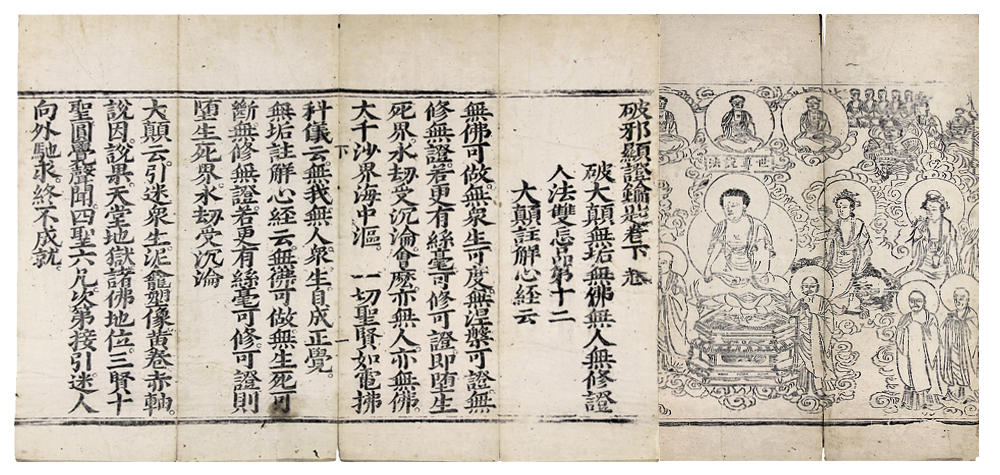 世尊說法
破邪顯證鑰匙卷下 卷
破大顛無垢無佛無人無修證
人法雙忘品第十二
大顛註解心經云
無佛可做。無衆生可度。無涅槃可證。無
修無證。若更有絲毫可修可證即堕生
死界。永劫受沉淪會麽。亦無人亦無佛。
大千沙界海中漚。一切聖賢如電拂
下 一
科儀云。無我無人衆生自成正覺。
無垢註解心經云。無佛可做。無生死可
斷。無修無證。若更有絲毫可修。可證則
堕生死界。永劫受沉淪
大顛云。引迷衆生。泥龕塑像。黄卷赤軸。
說因。說果。天堂地獄。諸佛地位。三賢十
聖。圓覺聲聞。四聖六凡。次第接引迷人
向外馳求。終不成就。